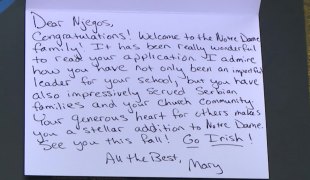 Dear Njegos,
Congratulations! Welcome to the Notre Dame
family! It has been really wonderful
to read your application. I admire
how you have not only been an important
leader for your school, but you have
also impressively served Serbian
families and your church community.
Your generous heart for others makes
you a stellar addition to Notre Dame.
See you this fall! Go Irish!
All the Best,
Mary